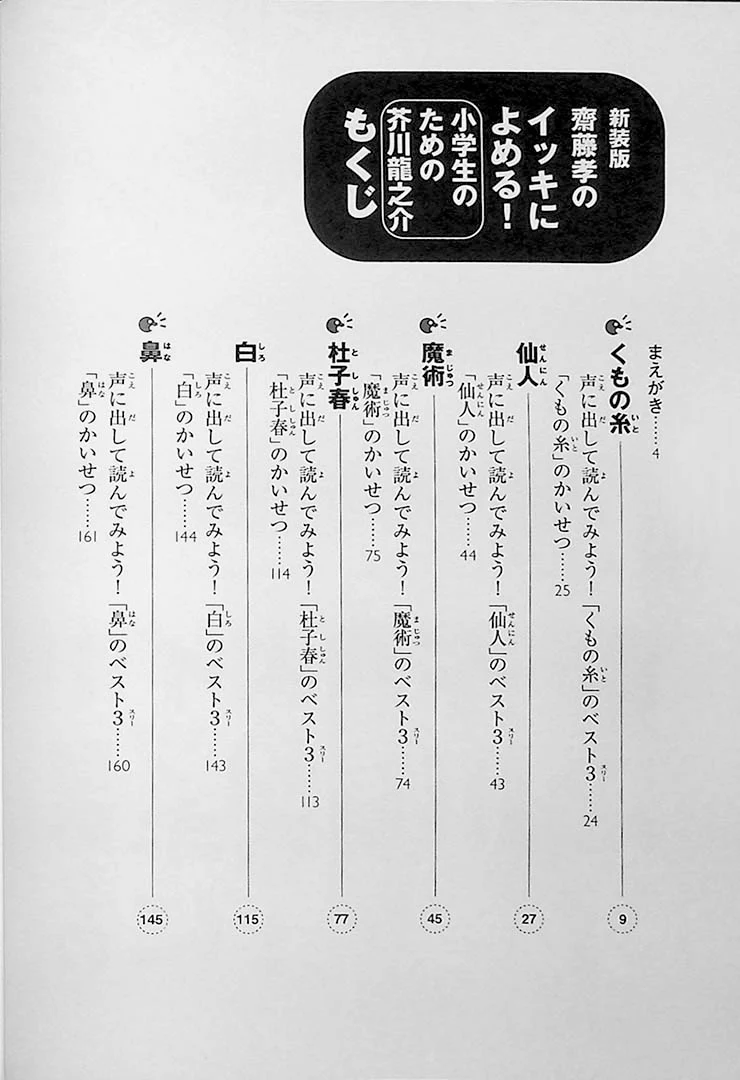 新装版
齋藤孝の
イッキに
よめる！
小学生の
ための
芥川龍之介
もくじ
まえがき……4
くもの糸 9
声に出して読んでみよう！「くもの糸」のベスト3……24
「くもの糸」のかいせつ……25
仙人 27
声に出して読んでみよう！「仙人」のベスト3……43
「仙人」のかいせつ……44
魔術 45
声に出して読んでみよう！「魔術」のベスト3……74
「魔術」のかいせつ……75
杜子春 77
声に出して読んでみよう！「杜子春」のベスト3……113
「杜子春」のかいせつ……114
白 115
声に出して読んでみよう！「白」のベスト3……143
「白」のかいせつ……144
鼻 145
声に出して読んでみよう！「鼻」のベスト3……160
「鼻」のかいせつ……161